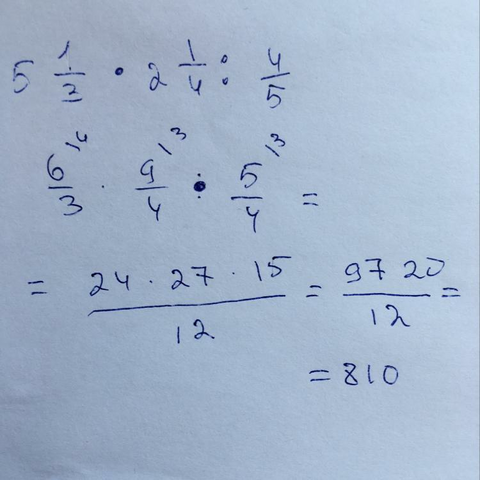 5 1/2 · 2 1/4 : 4/5
6/3 \4 · 9/4 \3 : 5/4 \3 =
= 24 · 27 · 15 / 12 = 9720 / 12 =
= 810